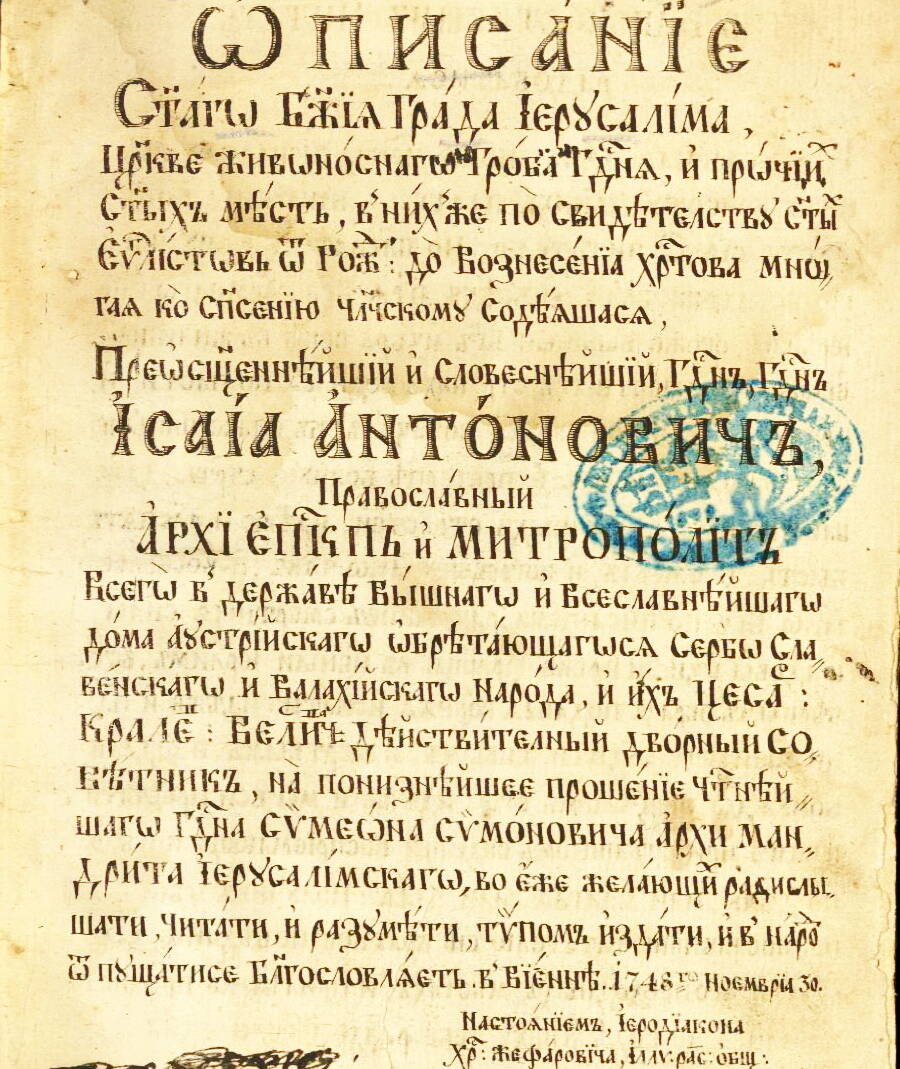 Ѡписа́нїе
Ст҃а́гѡ Бж҃їѧ Гра́да І҆ерꙋсалі́ма,
Цр҃кве живѡно́снагѡ Гро́ба Гдⷭ҇нѧ, и҆ прѡ́чїиⷯ
Ст҃ыхъ мѣ́стъ, в̾ ни́хже по свидѣ́телствꙋ ст҃ыⷯ
Є҆ѵⷢ҇лі́стѡвь ѿ Рожⷣ: до Вознесе́нїѧ хрⷭ҇това мнѡ́,,
гаѧ ко сп҃се́нїю чл҃ческомꙋ Содѣ́ѧшасѧ,
Преѡ҆сщ҃еннѣ́йшїй и҆ Словеснѣ́йшїй, Гдⷭ҇нъ, Гдⷭ҇нъ
І҆саі́а А҆нто́новичъ,
Правосла́вный
А҆рхїепⷭ҇кпь и҆ митрополі́тъ
Всегѡ̀ в̾ держа́вѣ Вы́шнагѡ и҆ Всеславнѣ́йшагѡ
до́ма Аѵстрі́йскагѡ ѡ҆брѣта́ющагѡсѧ Сербѡ Сла,,
ве́нскагѡ и҆ Валахі́йскагѡ Наро́да, и҆ и҆́хъ Цесаⷬ:
Крале: Вели: дѣйстви́телный дво́рный Со,,
вѣ́тникъ, на̀ понизнѣ́йшее проше́нїе чⷭ҇тнѣ́й,,
шагѡ Гдⷭ҇на Сѷмеѡ́на Сѷмо́новича а҆рхи ман,,
дри́та І҆ерꙋсалі́мскагѡ, во є҆́же жела́ющыⷨ ради слы,,
шати, чита́ти, и҆ разꙋмѣ́ти, тѵ́помъ и҆зда́ти, и҆ в̾ наро́ⷣ
ѿ пꙋща́тисе Бл҃гословлѧ́етъ. в̾ Вїе́ннѣ. 1748го Ноемврїа 30.
Настоѧ́нїемъ, І҆еродїакона
Хрⷭ҇: Жефа́ровїча, І҆ллѵ: рас: о҆бщ: